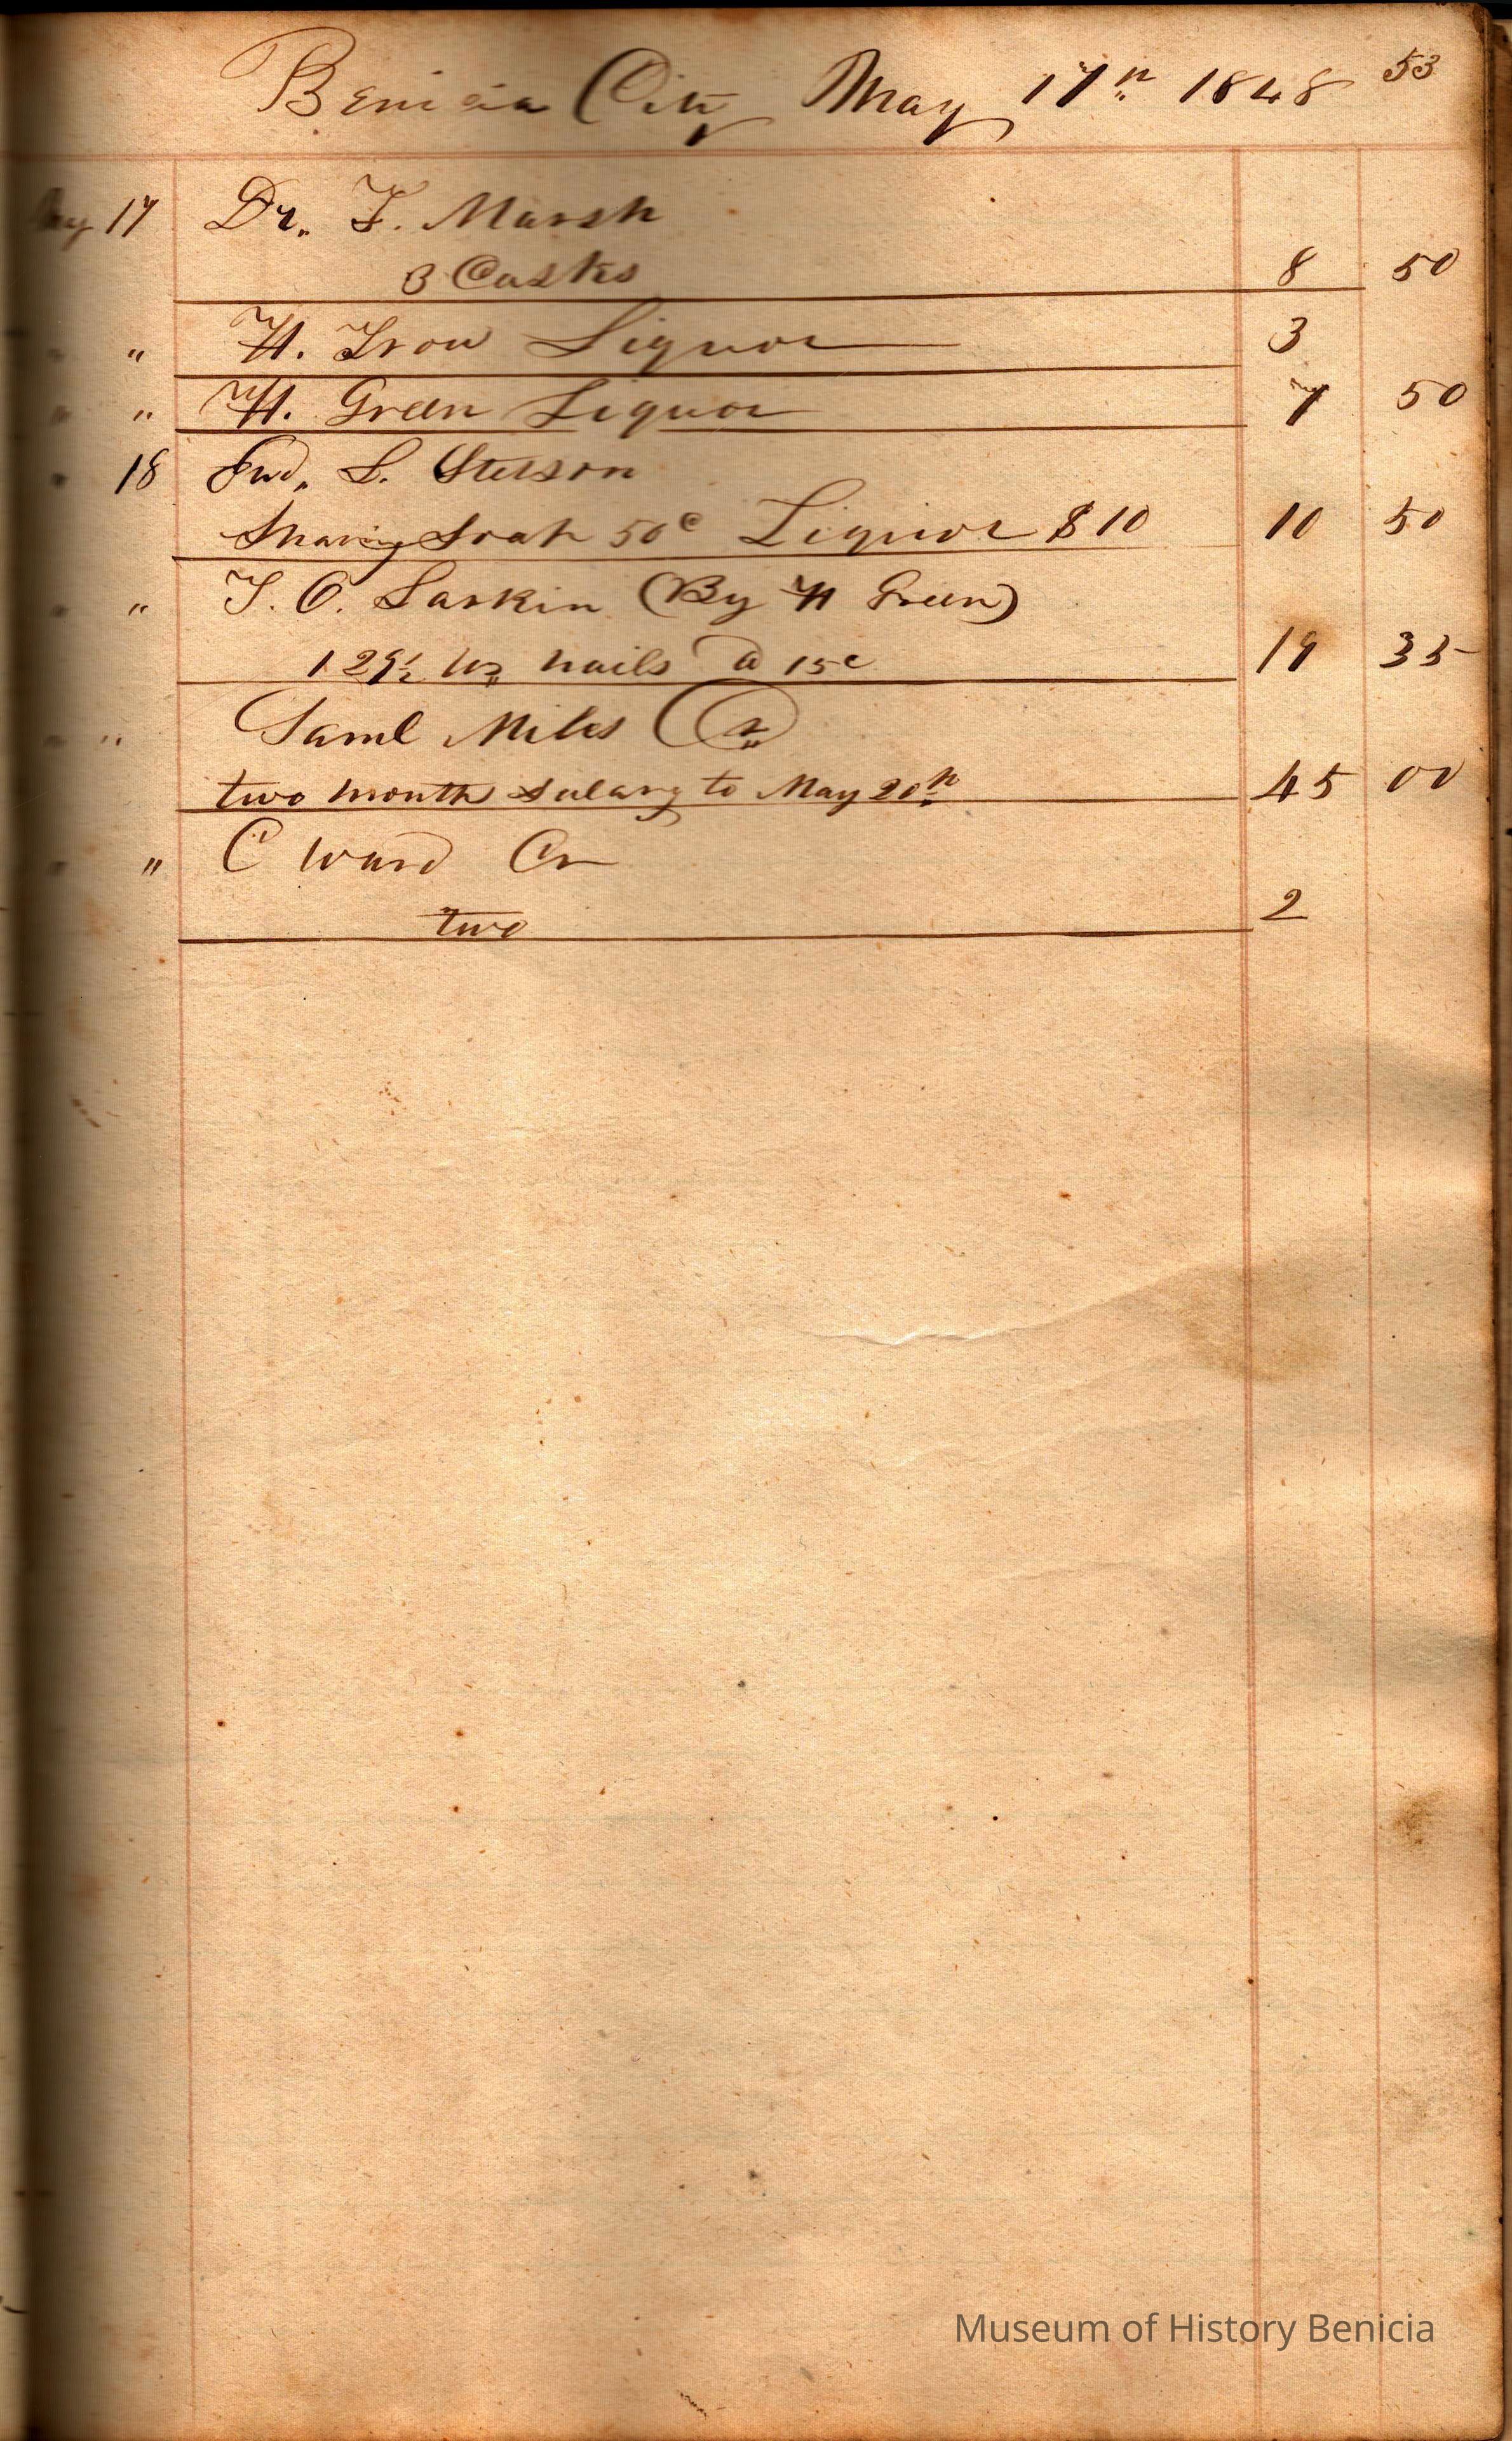 Benicia City May 17th 1848 53
May 17 Dr. J. Marsh
3 Casks 8 50
" H. Trow Liquor 3
" H. Green Liquor 7 50
18 L. Stetson
Shaving Soap 50c Liquor $10 10 50
" T. O. Larkin (By H Green)
129½ lbs nails @ 15c 19 35
" Saml Miles Cr
two months salary to May 20th 45 00
" C Ward Cr
two 2
Museum of History Benicia